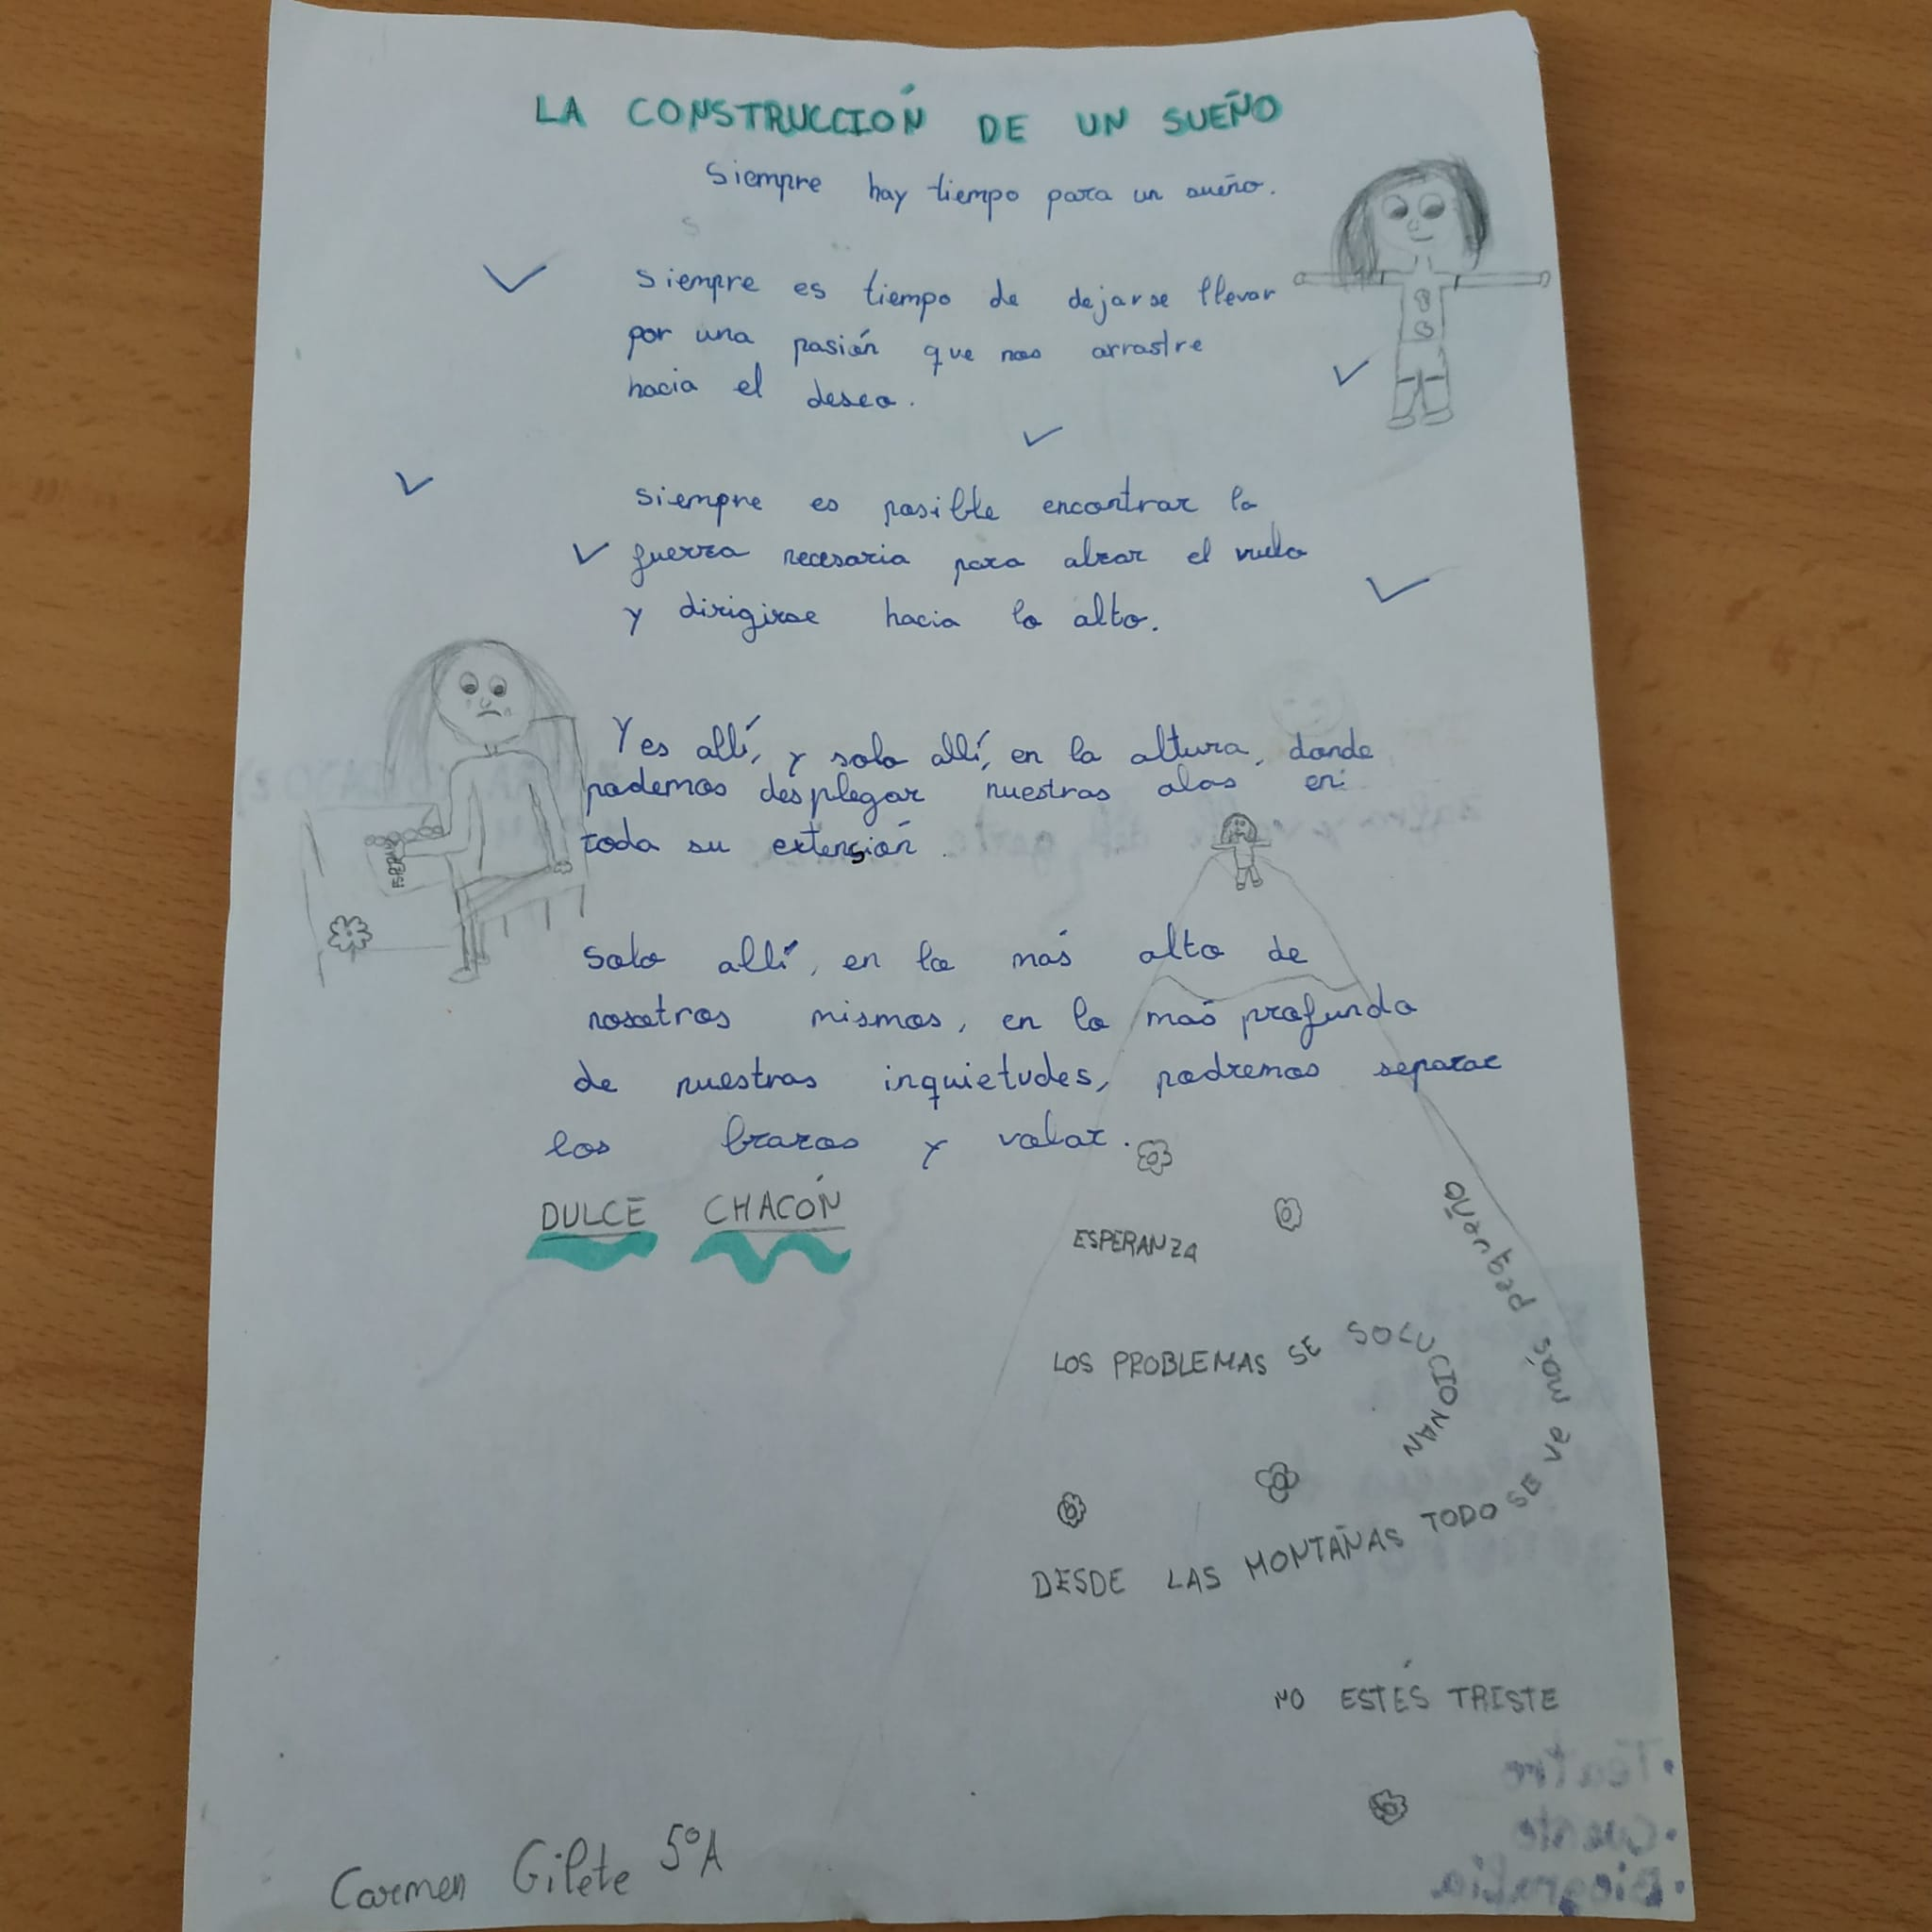 LA CONSTRUCCIÓN DE UN SUEÑO
Siempre hay tiempo para un sueño.
Siempre es tiempo de dejarse llevar
por una pasión que nos arrastre
hacia el deseo.
Siempre es posible encontrar la
fuerza necesaria para alzar el vuelo
y dirigirse hacia lo alto.
Y es allí, y solo allí, en la altura, donde
podemos desplegar nuestras alas en
toda su extensión.
Solo allí, en lo más alto de
nosotros mismos, en lo más profundo
de nuestras inquietudes, podremos separar
los brazos y volar.
DULCE CHACÓN
ESPERANZA
LOS PROBLEMAS SE SOLUCIONAN
DESDE LAS MONTAÑAS TODO SE VE MÁS PEQUEÑO
NO ESTÉS TRISTE
Carmen Gilete 5ºA